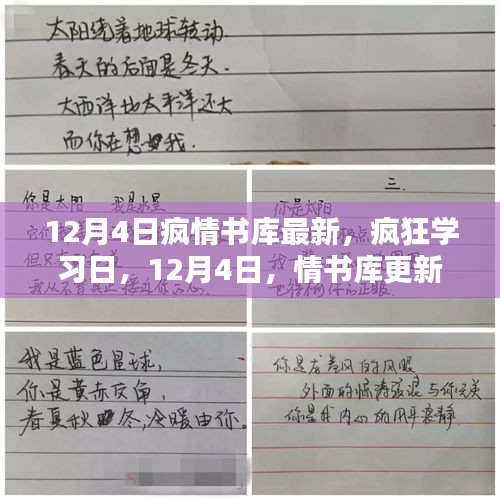 太阳绕着地球转动
春天的后面是冬天.
大西洋比太平洋还大
而你在想我.
你是太阳 我是水星
三.
你是太阳
12月4日疯情书库最新，疯狂学
习日，12月4日，情书库更新
我是蓝色星球,
你是黄赤交角,
春夏秋冬,冷暖由你。
你是龙卷风的风眼
外面的惊涛骇浪与你无关
你是我内心的风平浪静.